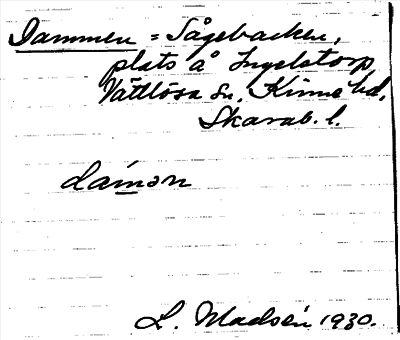 Dammen = Sågebacken,
plats å Ingelstorp
Vättlösa sn, Kinne hd,
Skarab. l.
damən
L. Madsén 1930.